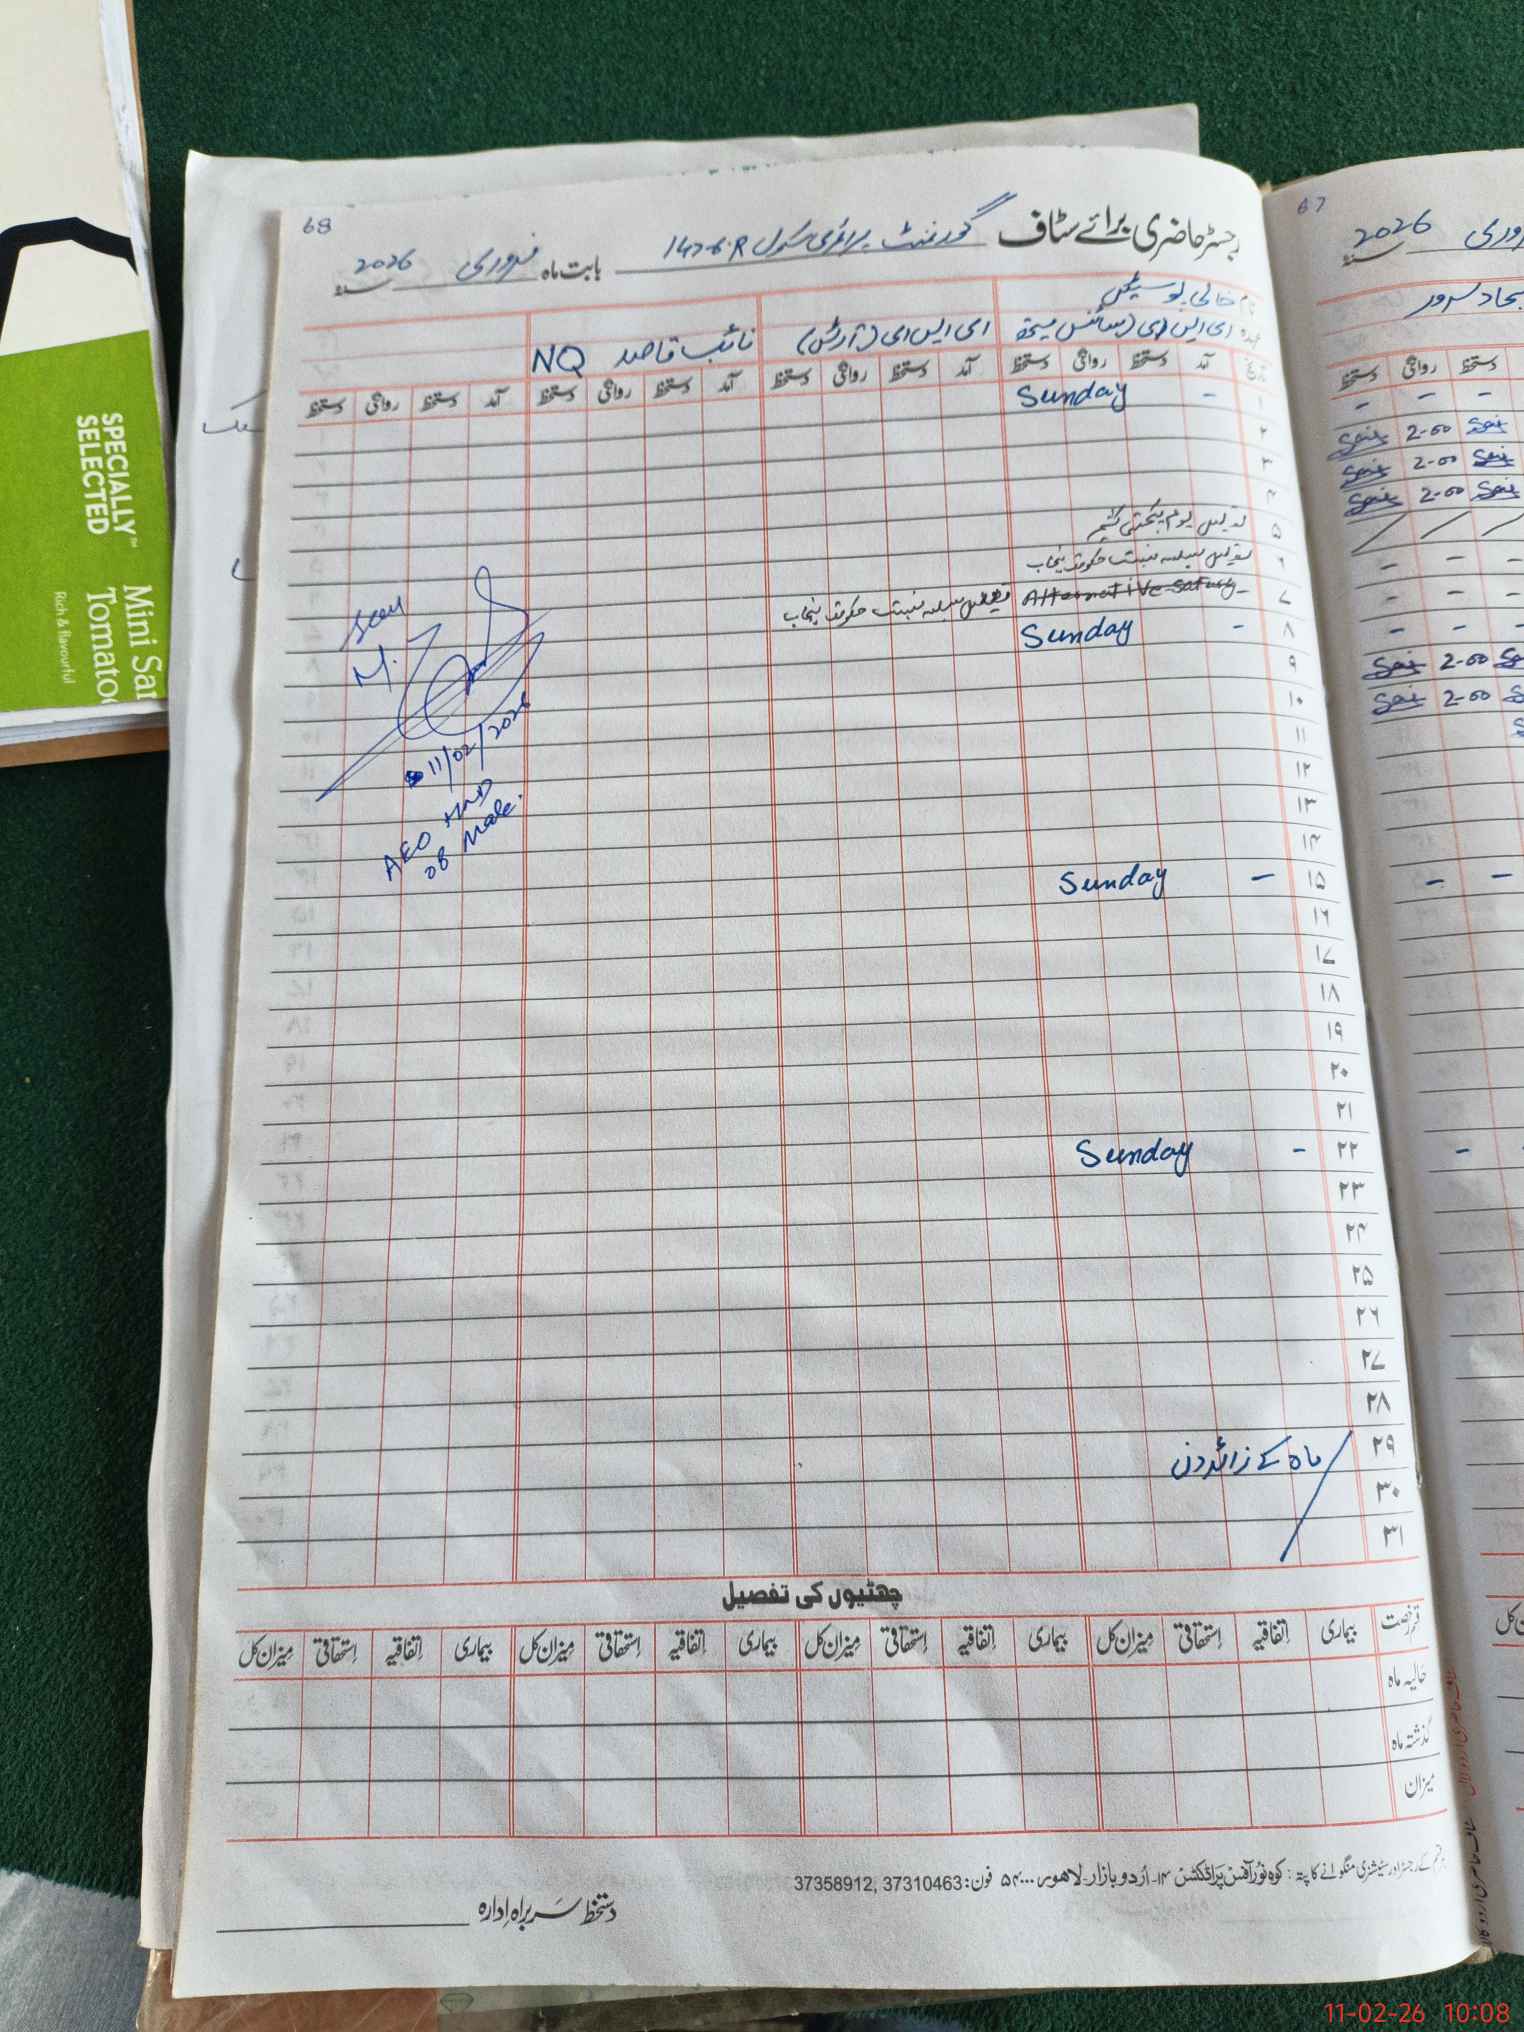 68
رجسٹر حاضری برائے سٹاف گورنمنٹ پرائمری سکول 147-6.R بابت ماہ فروری 2026
نام خالی پوسٹیں
عہدہ ای ایس ای (سائنس میتھ) ای ایس ای (آرٹس) نائب قاصد NQ
تاریخ آمد دستخط روانگی دستخط آمد دستخط روانگی دستخط آمد دستخط روانگی دستخط آمد دستخط روانگی دستخط
۱ - Sunday
۲
۳
۴
۵ تعطیل یوم یکجہتی کشمیر
۶ تعطیل بسلسلہ بسنت حکومت پنجاب
۷ Alternative Satury تعطیل بسلسلہ بسنت حکومت پنجاب
۸ - Sunday
۹
۱۰
۱۱
۱۲
۱۳
۱۴
۱۵ - Sunday
۱۶
۱۷
۱۸
۱۹
۲۰
۲۱
۲۲ - Sunday
۲۳
۲۴
۲۵
۲۶
۲۷
۲۸
۲۹ ماہ کے زائد دن
۳۰
۳۱
Seen
11/02/2026
AEO HND
08 Male.
چھٹیوں کی تفصیل
قسم رخصت بیماری اتفاقیہ استحقاقی میزان کل بیماری اتفاقیہ استحقاقی میزان کل بیماری اتفاقیہ استحقاقی میزان کل بیماری اتفاقیہ استحقاقی میزان کل
حالیہ ماہ
گذشتہ ماہ
میزان
ہر قسم کے رجسٹر اور سٹیشنری منگوانے کا پتہ: کوہ نور آفس پراڈکٹس ۱۴-اردو بازار-لاہور ۵۴۰۰۰ فون: 37310463, 37358912
دستخط سربراہ ادارہ
67
فروری 2026
سجاد سرور
دستخط روانگی دستخط
- - -
2-00
2-00
2-00
- - -
- - -
- - -
2-00
2-00
- -
-
SPECIALLY SELECTED™
Mini San
Tomato
Rich & flavourful
11-02-26 10:08